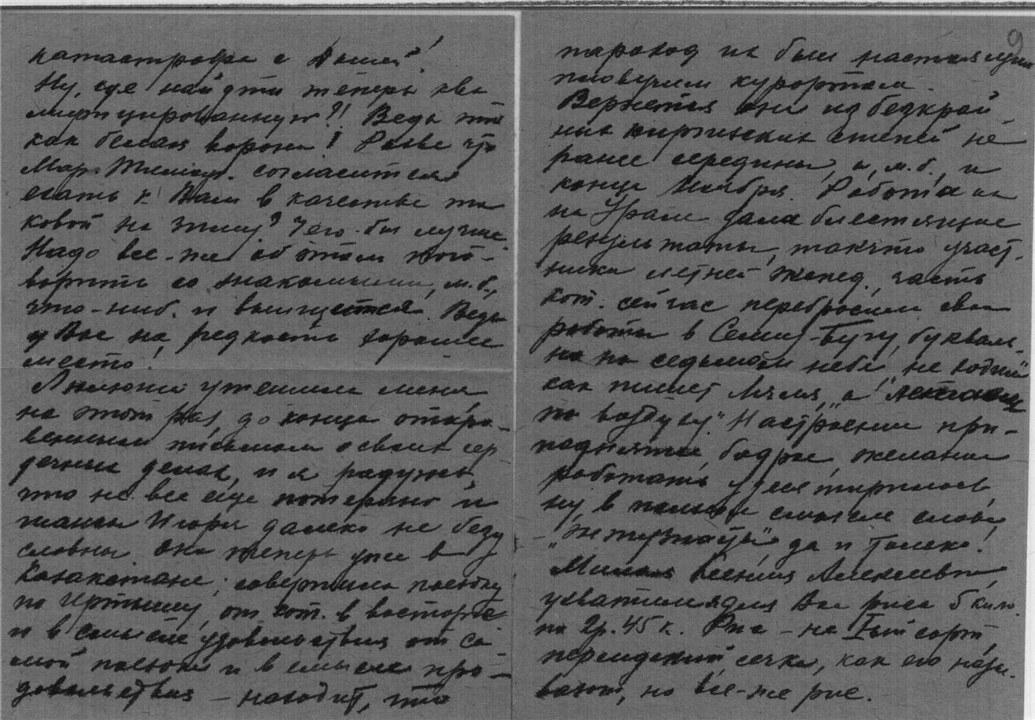 катастрофа с Вашей!
Ну, где найдти теперь ква
лифицированную?! Ведь это
как белая ворона! Разве что
Мар. согласится
ехать к Вам в качестве та
ковой на зиму? Чего бы лучше.
Надо все-же об этом пого-
ворить со знакомыми, м.б.,
что-ниб. и выищется. Ведь
у Вас на редкость хорошее
место!
Лялюша утешила меня
на этот раз, до конца откро-
венным письмом о своих сер
дечных делах, и я радуюсь,
что не все еще потеряно и
шансы Игоря далеко не безу
словны. Она теперь уже в
Казакстане; совершила поездку
по Иртышу, от кот. в восторге
и в смысле удовольствия от са
мой поездки и в смысле про-
довольствия — находит, что
9
пароход их был настоящим
пловучим курортом.
Вернется она из бескрай
них киргизских степей не
ранее середины, а, м.б., и
конца Ноября. Работа их
на Урале дала блестящие
результаты, так что участ-
ники летней экспед., часть
кот. сейчас переброшена для
работы в Семиз-Бугу, букваль-
но на седьмом небе, не ходят,
как пишет Ляля, а "летают
по воздуху". Настроение при-
поднятое, бодрое, желание
работать
ну в полном смысле слова,
"энтузиасты" да и только!
Милая Ксения Алексеевна,
ухватила для Вас риса 5 кило
по 2р. 45 к. Рис — не Iый сорт
персидский сечка, как его назы-
вают, но все-же рис.